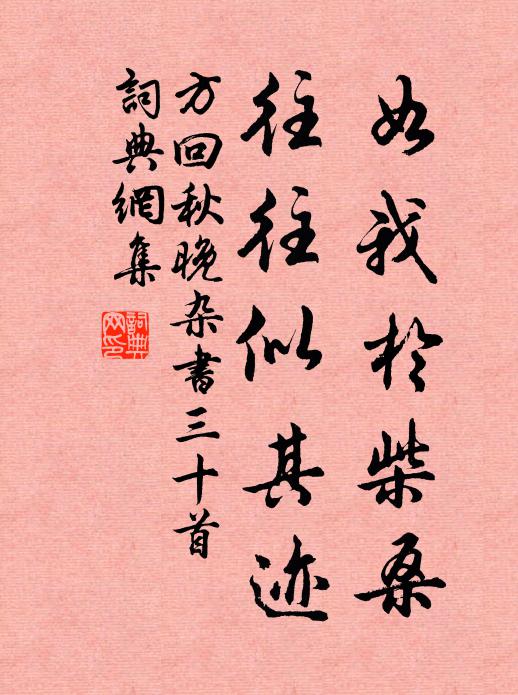 如我於柴桑
往往似其迹
方回秋晚杂書三十首
詞典網集
詞典網印